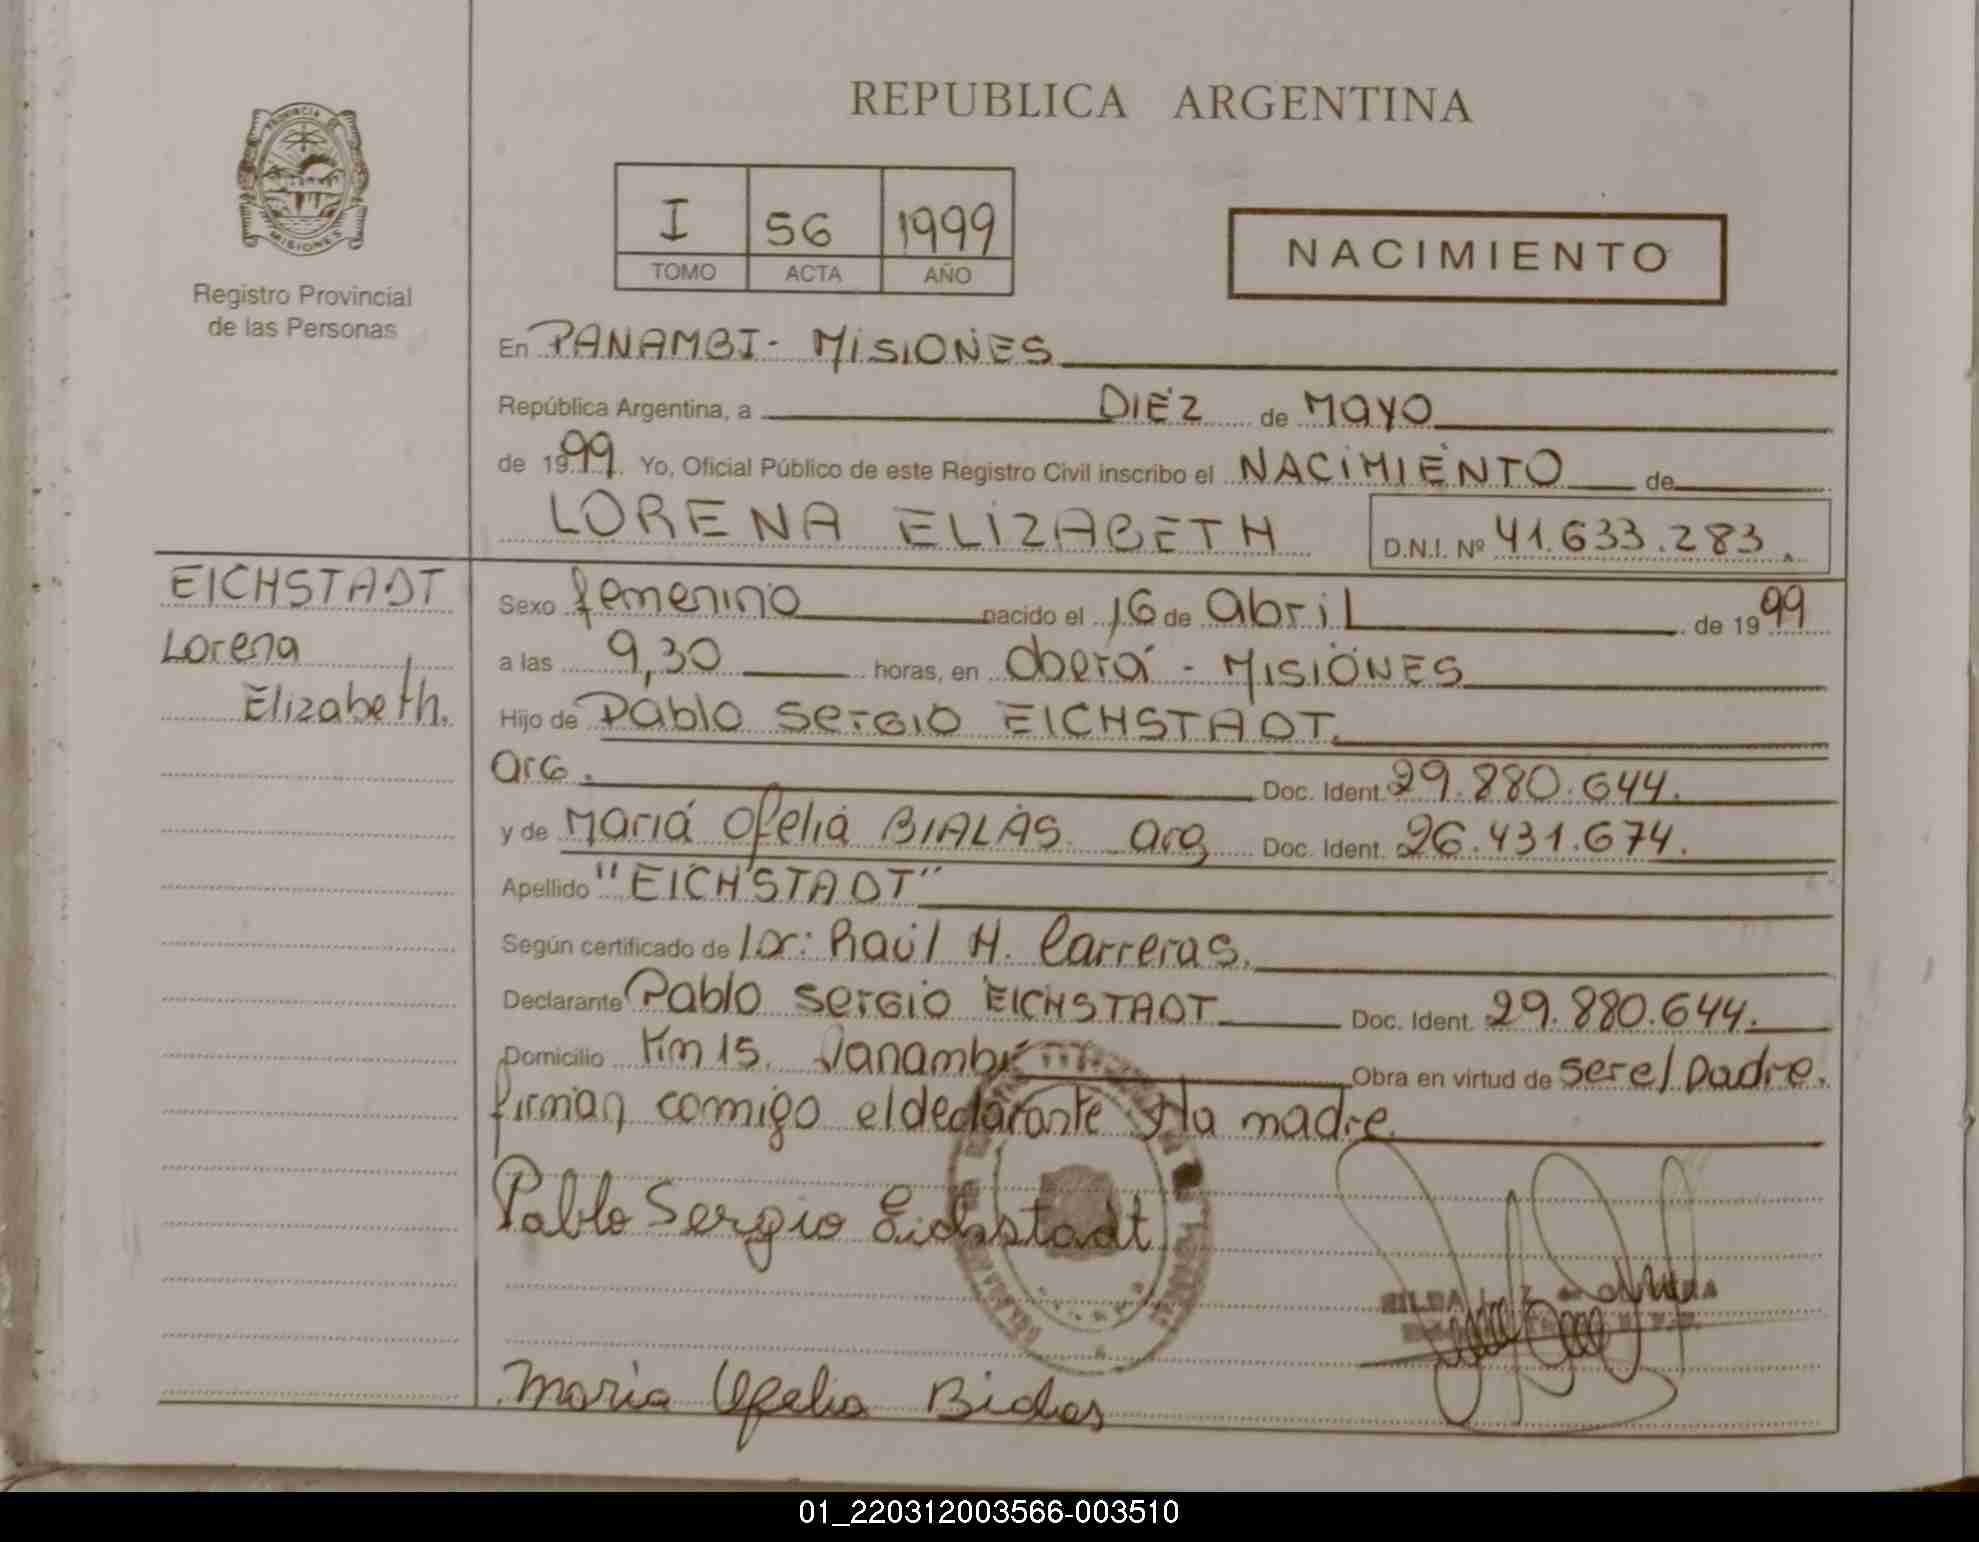 REPUBLICA ARGENTINA
PROVINCIA DE
MISIONES
Registro Provincial
de las Personas
I 56 1999
TOMO ACTA AÑO
NACIMIENTO
En PANAMBI - MISIONES
República Argentina, a DIEZ de MAYO
de 1999. Yo, Oficial Público de este Registro Civil inscribo el NACIMIENTO de
LORENA ELIZABETH D.N.I. Nº 41.633.283.
EICHSTADT
Lorena
Elizabeth.
Sexo femenino nacido el 16 de abril de 1999
a las 9,30 horas, en Oberá - MISIONES
Hijo de Pablo Sergio EICHSTADT.
arg. Doc. Ident. 29.880.644.
y de María Ofelia BIALAS. arg Doc. Ident. 26.431.674.
Apellido "EICHSTADT"
Según certificado de Dr: Raúl H. Carreras.
Declarante Pablo Sergio EICHSTADT Doc. Ident. 29.880.644.
Domicilio Km 15. Panambí Obra en virtud de ser el padre.
firman conmigo el declarante y la madre.
Pablo Sergio Eichstadt
Maria Ofelia Bialas
01_220312003566-003510